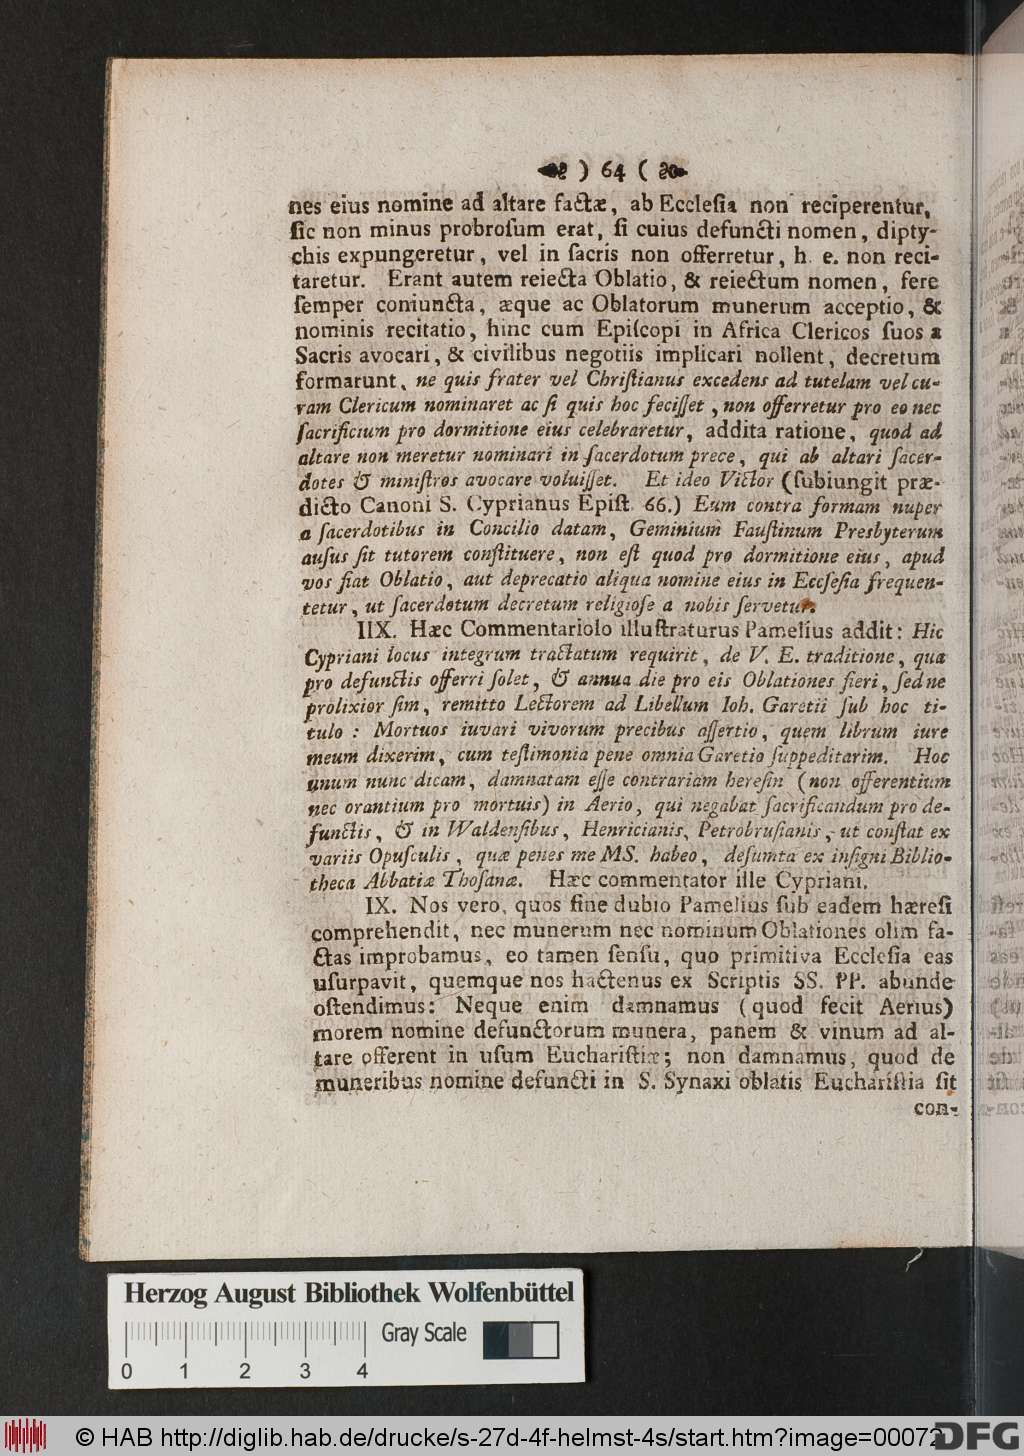 ) 64 (
nes eius nomine ad altare factæ, ab Eccleſia non reciperentur,
ſic non minus probroſum erat, ſi cuius defuncti nomen, dipty-
chis expungeretur, vel in ſacris non offerretur, h. e. non reci-
taretur. Erant autem reiecta Oblatio, & reiectum nomen, fere
ſemper coniuncta, æque ac Oblatorum munerum acceptio, &
nominis recitatio, hinc cum Epiſcopi in Africa Clericos ſuos a
Sacris avocari, & civilibus negotiis implicari nollent, decretum
formarunt, ne quis frater vel Chriſtianus excedens ad tutelam vel cu-
ram Clericum nominaret ac ſi quis hoc feciſſet, non offerretur pro eo nec
ſacrificium pro dormitione eius celebraretur, addita ratione, quod ad
altare non meretur nominari in ſacerdotum prece, qui ab altari ſacer-
dotes & miniſtros avocare voluiſſet. Et ideo Victor (ſubiungit præ-
dicto Canoni S. Cyprianus Epiſt. 66.) Eum contra formam nuper
a ſacerdotibus in Concilio datam, Geminium Fauſtinum Presbyterum
auſus ſit tutorem conſtituere, non eſt quod pro dormitione eius, apud
vos fiat Oblatio, aut deprecatio aliqua nomine eius in Eccſeſia frequen-
tetur, ut ſacerdotum decretum religioſe a nobis ſervetur.
IIX. Hæc Commentariolo illuſtraturus Pamelius addit: Hic
Cypriani locus integrum tractatum requirit, de V. E. traditione, qua
pro defunctis offerri ſolet, & annua die pro eis Oblationes fieri, ſed ne
prolixior ſim, remitto Lectorem ad Libellum Ioh. Garetii ſub hoc ti-
tulo: Mortuos iuvari vivorum precibus aſſertio, quem librum iure
meum dixerim, cum teſtimonia pene omnia Garetio ſuppeditarim. Hoc
unum nunc dicam, damnatam eſſe contrariam hereſin (non offerentium
nec orantium pro mortuis) in Aerio, qui negabat ſacrificandum pro de-
functis, & in Waldenſibus, Henricianis, Petrobruſianis, ut conſtat ex
variis Opuſculis, quæ penes me MS. habeo, deſumta ex inſigni Biblio-
theca Abbatiæ Thoſanæ. Hæc commentator ille Cypriani.
IX. Nos vero, quos ſine dubio Pamelius ſub eadem hæreſi
comprehendit, nec munerum nec nominum Oblationes olim fa-
ctas improbamus, eo tamen ſenſu, quo primitiva Eccleſia eas
uſurpavit, quemque nos hactenus ex Scriptis SS. PP. abunde
oſtendimus: Neque enim damnamus (quod fecit Aerius)
morem nomine defunctorum munera, panem & vinum ad al-
tare offerent in uſum Euchariſtiæ; non damnamus, quod de
muneribus nomine defuncti in S. Synaxi oblatis Euchariſtia ſit
con-
Herzog August Bibliothek Wolfenbüttel
Gray Scale
0 1 2 3 4
© HAB http://diglib.hab.de/drucke/s-27d-4f-helmst-4s/start.htm?image=00072
DFG